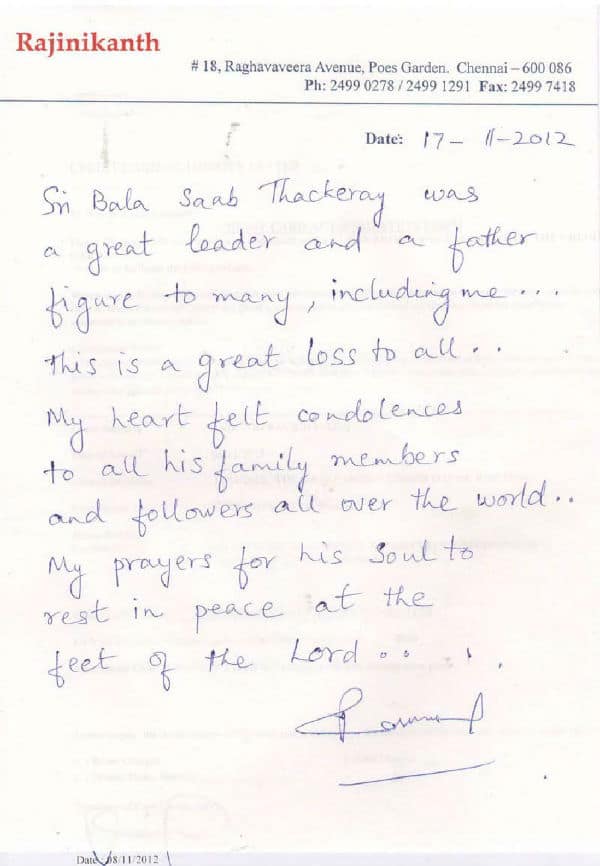 Rajinikanth
# 18, Raghavaveera Avenue, Poes Garden. Chennai – 600 086
Ph: 2499 0278 / 2499 1291 Fax: 2499 7418
Date: 17 - 11 - 2012
Sri Bala Saab Thackeray was
a great leader and a father
figure to many, including me...
This is a great loss to all..
My heart felt condolences
to all his family members
and followers all over the world..
My prayers for his Soul to
rest in peace at the
feet of the Lord.. . .
Date 08/11/2012